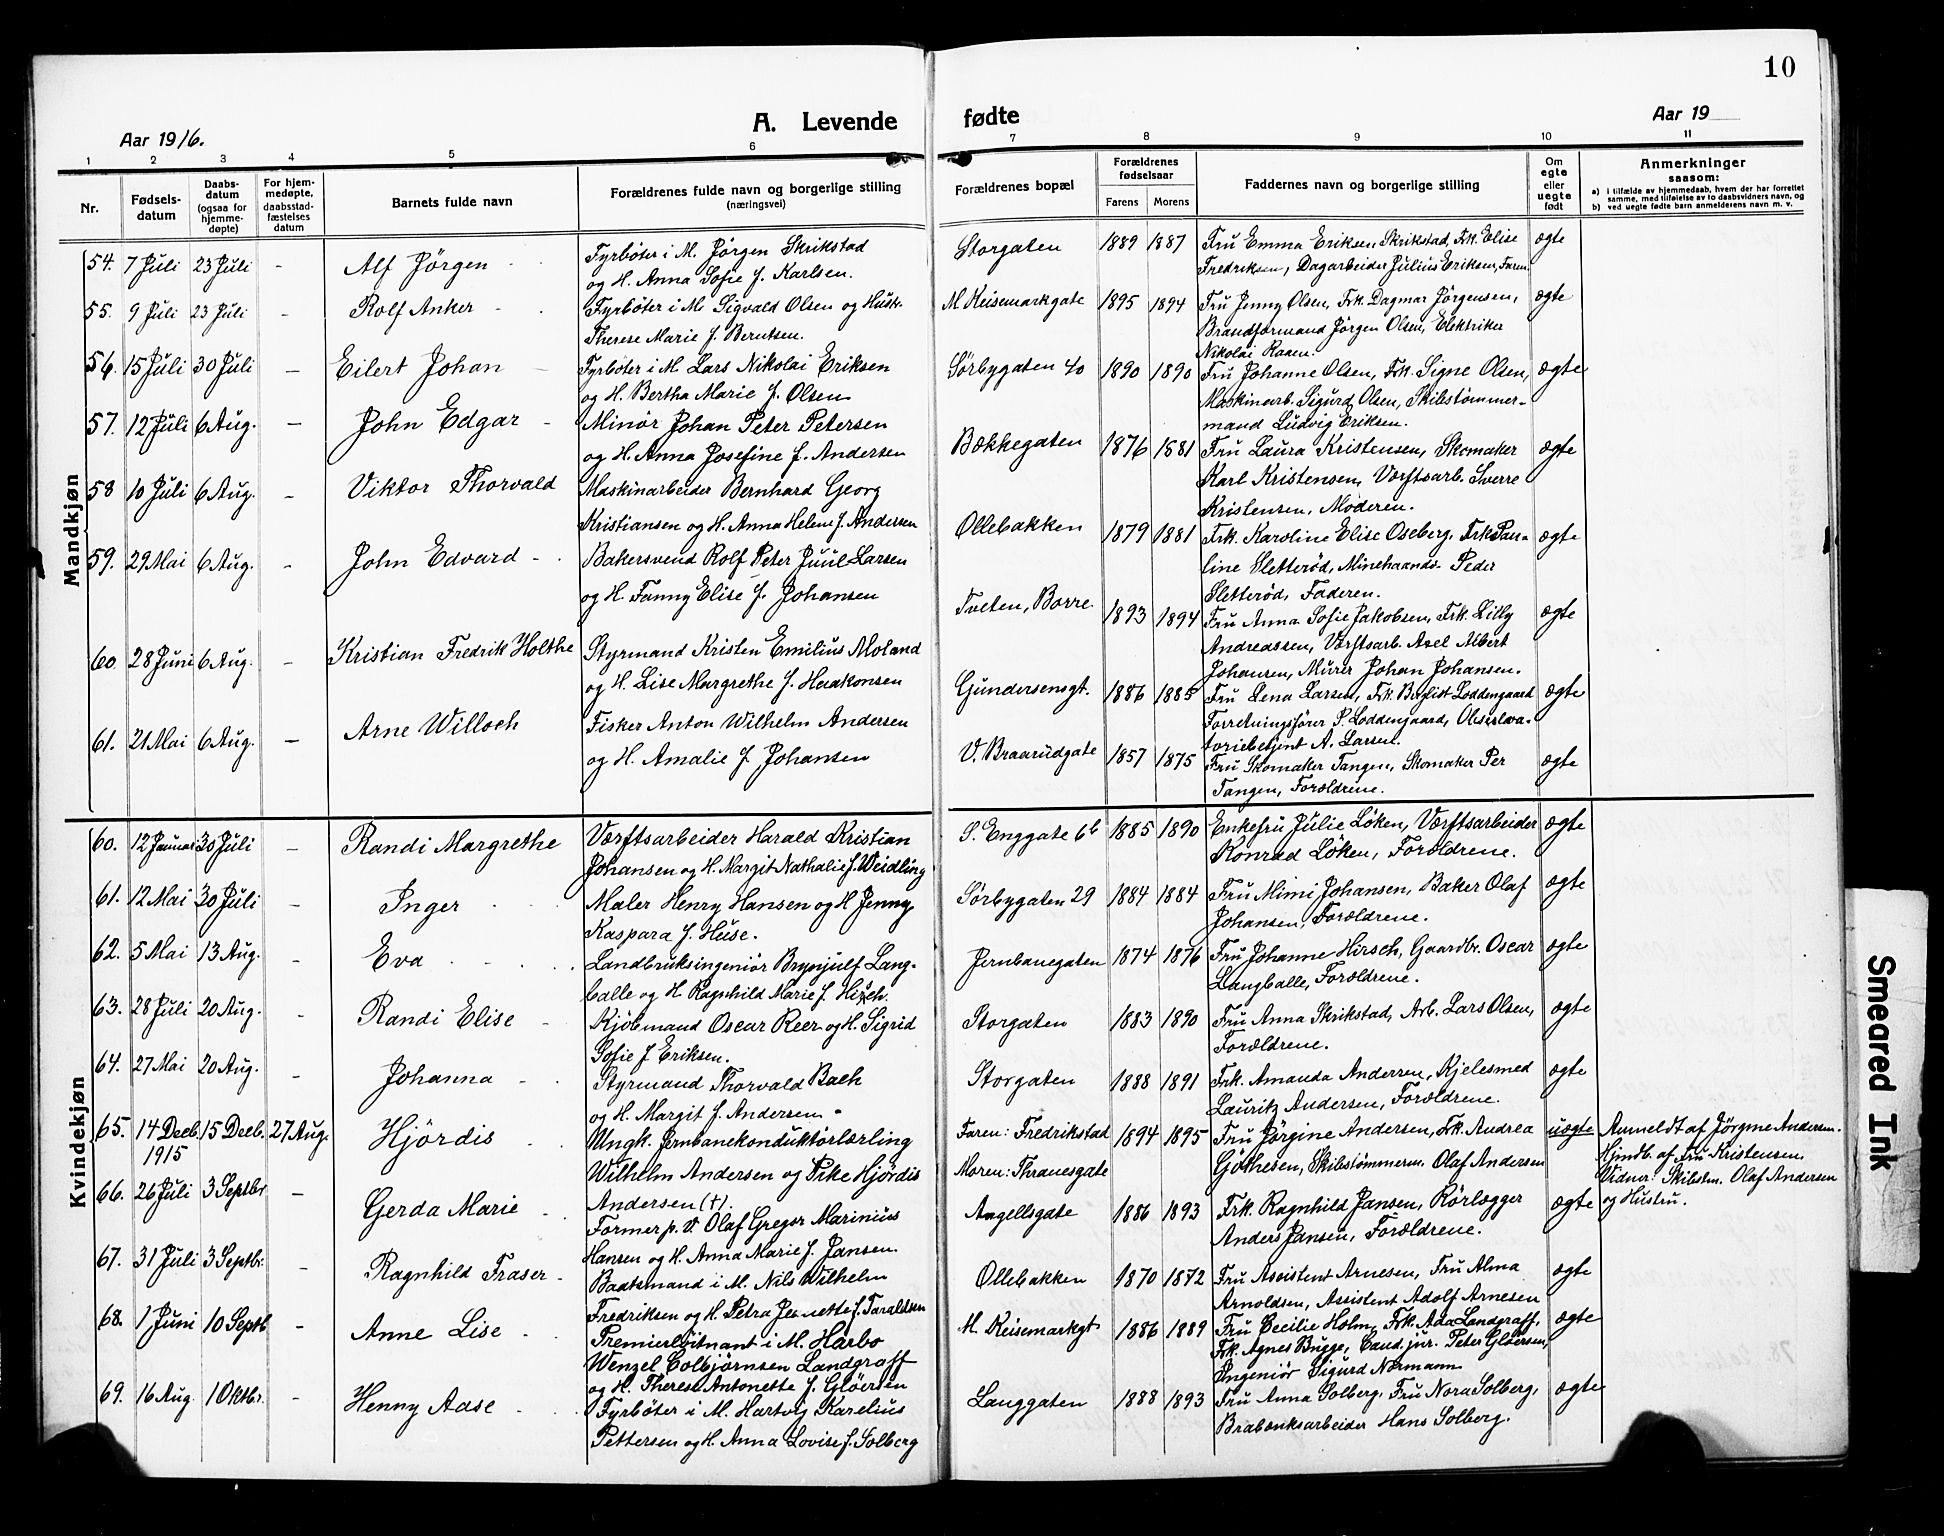 10
Aar 1916.
A. Levende fødte
Aar 19
1 2 3 4 5 6 7 8 9 10 11
Nr.
Fødsels-
datum
Daabs-
datum
(ogsaa for
hjemme-
døpte)
For hjem-
medøpte,
daabsstad-
fæstelses
datum
Barnets fulde navn
Forældrenes fulde navn og borgerlige stilling
(næringsvei)
Forældrenes bopæl
Forældrenes
fødselsaar
Farens Morens
Faddernes navn og borgerlige stilling
Om
egte
eller
uegte
født
Anmerkninger
saasom:
a) i tilfælde av hjemmedaab, hvem der har forrettet
samme, med tilføielse av to daabsvidners navn, og
b) ved uegte fødte barn anmelderens navn m. v.
Mandkjøn
54. 7 Juli 23 Juli - Alf Jörgen
Fyrböter i M. Jörgen Skrikstad
og H. Anna Sofie f. Karlsen.
Storgaten 1889 1887
Fru Emma Eriksen Skrikstad, Frk. Elise
Fredriksen, Dagarbeider Julius Eriksen, Faren
ægte
55. 9 Juli 23 Juli - Rolf Anker
Fyrböter i M. Sigvald Olsen og Husk.
Therese Marie f. Berntsen.
M. Reisemarkgate 1895 1894
Fru Jenny Olsen, Frk. Dagmar Jörgensen,
Brandformand Jörgen Olsen, Elektriker
Nikolai Raaen.
ægte
56. 15 Juli 30 Juli - Eilert Johan
Fyrböter i M. Lars Nikolai Eriksen
og H. Bertha Marie f. Olsen
Sörbygaten 40 1890 1890
Fru Johanne Olsen, Frk. Signe Olsen,
Maskinarb. Sigurd Olsen, Skibstömmer-
mand Ludvig Eriksen.
ægte
57. 12 Juli 6 Aug. - John Edgar
Minör Johan Peter Petersen
og H. Anna Josefine f. Andersen
Bækkegaten 1876 1881
Fru Laura Kristensen, Skomaker
Karl Kristensen, Værftsarb. Sverre
Kristensen, Moderen.
ægte
58 10 Juli 6 Aug. - Viktor Thorvald
Maskinarbeider Bernhard Georg
Kristiansen og H. Anna Helene f. Andersen
Ollebakken 1879 1881
Frk. Karoline Elise Oseberg, Frk. Pau-
line Sletteröd, Minehaands. Peder
Sletteröd, Faderen.
ægte
59. 29 Mai 6 Aug. - John Edvard
Bakersvend Rolf Peter Juul Larsen
og H. Fanny Elise f. Johansen
Tveten, Borre. 1893 1894
Fru Anna Sofie Jakobsen, Frk. Lilly
Andreassen, Værftsarb. Axel Albert
Johansen, Murer Johan Johansen.
ægte
60 28 Juni 6 Aug. - Kristian Fredrik Holthe
Styrmand Kristen Emilius Moland
og H. Lise Margrethe f. Haakonsen
Gundersensgt. 1886 1885
Fru Lena Larsen, Frk. Birgit Loddengaard
Forretningsförer P. Loddengaard, Observa-
toriebetjent A. Larsen.
ægte
61. 21 Mai 6 Aug. - Arne Willoch
Fisker Anton Wilhelm Andersen
og H. Amalie f. Johansen
V. Braarudgate 1857 1875
Fru Skomaker Tangen, Skomaker Per
Tangen, Forældrene.
ægte
Kvindekjøn
60. 12 Januar 30 Juli - Randi Margrethe
Værftsarbeider Harald Kristian
Johansen og H. Margit Nathalie f. Weidling
S. Enggate 6b 1885 1890
Enkefru Julie Löken, Værftsarbeider
Konrad Löken, Forældrene.
ægte
61. 12 Mai 30 Juli - Inger
Maler Henry Hansen og H. Jenny
Kaspara f. Huse.
Sörbygaten 29 1884 1884
Fru Mimi Johansen, Baker Olaf
Johansen, Forældrene.
ægte
62. 5 Mai 13 Aug. - Eva
Landbruksingeniör Brynjulf Lang-
balle og H. Ragnhild Marie f. Hirsch.
Jernbanegaten 1874 1876
Fru Johanne Hirsch, Gaardbr. Oscar
Langballe, Forældrene.
ægte
63. 28 Juli 20 Aug. - Randi Elise
Kjöbmand Oscar Reer og H. Sigrid
Sofie f. Eriksen.
Storgaten 1883 1890
Fru Anna Skrikstad, Arb. Lars Olsen,
Forældrene.
ægte
64. 27 Mai 20 Aug. - Johanna
Styrmand Thorvald Bach
og H. Margit f. Andersen
Storgaten 1888 1891
Frk. Amanda Andersen, Kjelesmed
Lauritz Andersen, Forældrene.
ægte
65. 14 Decb. 1915 15 Decb. 27 Aug. Hjördis
Ungk. Jernbanekonduktörlærling
Wilhelm Andersen og Pike Hjördis
Andersen (†).
Faren: Fredrikstad
Moren: Thranesgate
1894 1895
Fru Jörgine Andersen, Frk. Andrea
Göthesen, Skibstömmerm. Olaf Andersen
uægte
Anmeldt af Jörgine Andersen.
Hjmdb. af Fru Kristensen.
Vidner: Skibstm. Olaf Andersen
og Hustru.
66. 26 Juli 3 Septbr - Gerda Marie
Former p. V. Olaf Gregor Marinius
Hansen og H. Anna Marie f. Jansen.
Angellsgate 1886 1893
Frk. Ragnhild Jansen, Rörlægger
Anders Jansen, Forældrene.
ægte
67. 31 Juli 3 Septbr. - Ragnhild Fraser
Baatsmand i M. Nils Wilhelm
Fredriksen og H. Petra Jeanette f. Taraldsen
Ollebakken 1870 1872
Fru Assistent Arnesen, Fru Alma
Arnoldsen, Assistent Adolf Arnesen
ægte
68. 1 Juni 10 Septb. - Anne Lise
Premierlöitnant i M. Harbo
Wenzel Colbjörnsen Landgraff
og H. Therese Antonette f. Glöersen
M. Reisemarkgt 1886 1889
Fru Cecilie Holm, Frk. Ada Landgraff,
Frk. Agnes Bugge, Cand. jur. Peter Glöersen,
Ingeniör Sigurd Normann
ægte
69. 16 Aug. 1 Oktbr. - Henny Aase
Fyrböter i M. Hartvig Karelius
Pettersen og H. Anna Lovise f. Solberg
Langgaten 1888 1893
Fru Anna Solberg, Fru Nora Solberg,
Brabænksarbeider Hans Solberg.
ægte
Smeared Ink